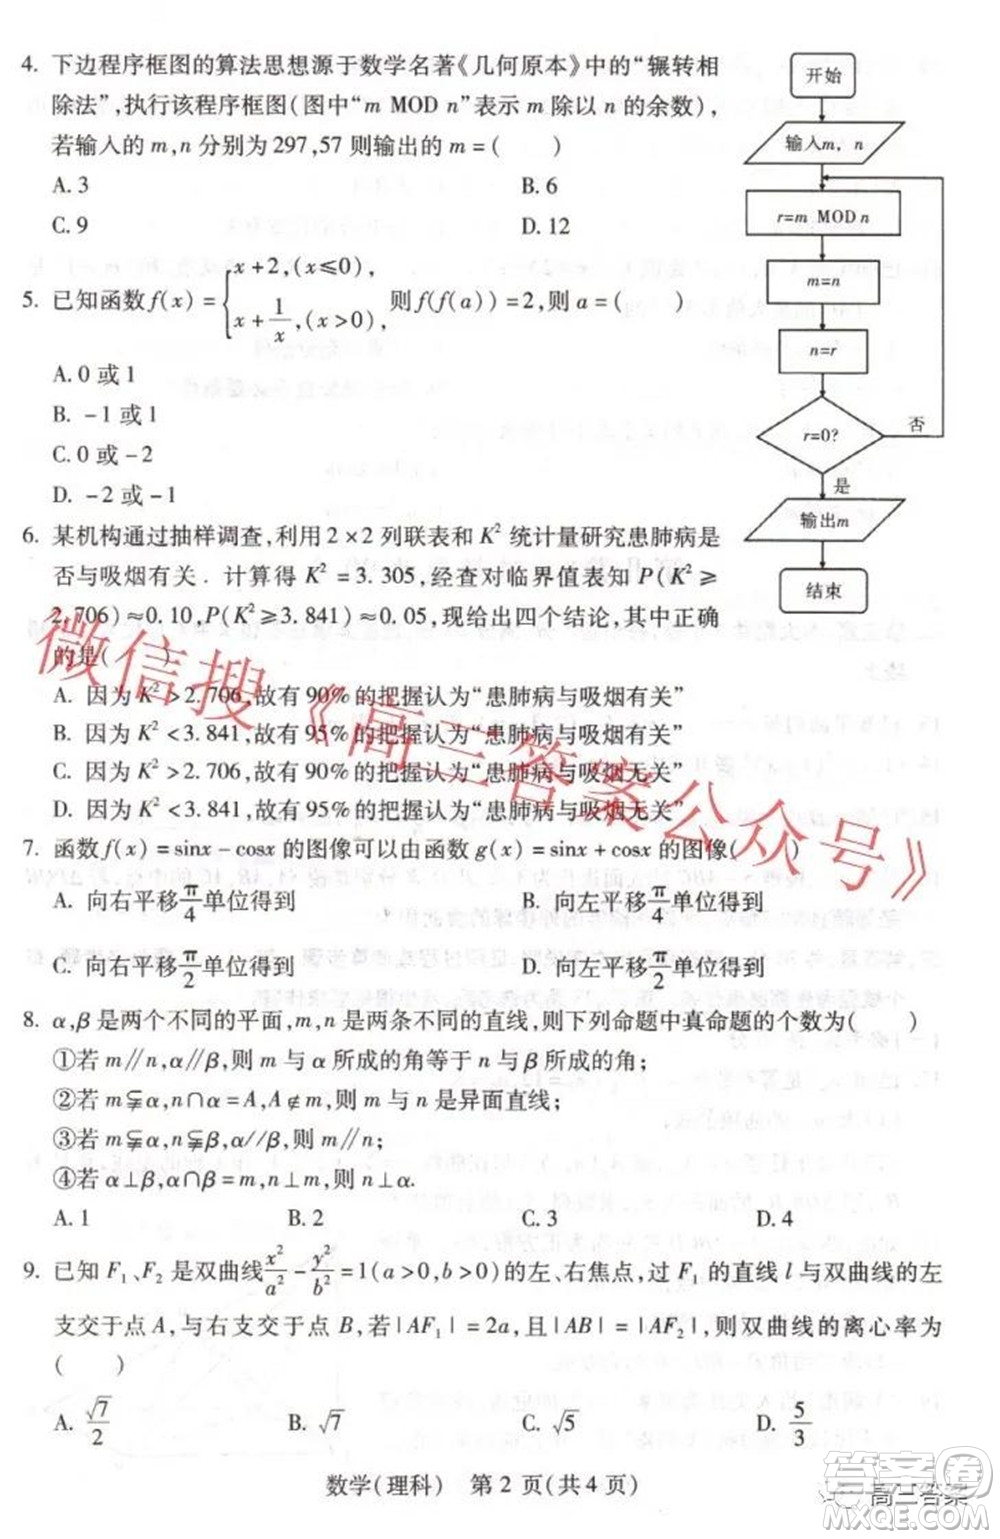 4. 下边程序框图的算法思想源于数学名著《几何原本》中的“辗转相
除法”，执行该程序框图(图中“m MOD n”表示 m 除以 n 的余数)，
若输入的 m,n 分别为 297,57 则输出的 m=(　　)
A. 3　B. 6
C. 9　D. 12
开始
输入m，n
r=m MOD n
m=n
n=r
r=0?
否
是
输出m
结束
5. 已知函数 f(x)={x+2,(x≤0), x+1/x,(x>0), 则 f(f(a))=2,则 a=(　　)
A. 0 或 1
B. -1 或 1
C. 0 或 -2
D. -2 或 -1
6. 某机构通过抽样调查,利用 2×2 列联表和 K² 统计量研究患肺病是
否与吸烟有关. 计算得 K²=3.305,经查对临界值表知 P(K²≥
2.706)≈0.10,P(K²≥3.841)≈0.05,现给出四个结论,其中正确
的是(　　)
A. 因为 K²>2.706,故有 90%的把握认为“患肺病与吸烟有关”
B. 因为 K²<3.841,故有 95%的把握认为“患肺病与吸烟有关”
C. 因为 K²>2.706,故有 90%的把握认为“患肺病与吸烟无关”
D. 因为 K²<3.841,故有 95%的把握认为“患肺病与吸烟无关”
7. 函数 f(x)=sinx-cosx 的图像可以由函数 g(x)=sinx+cosx 的图像(　　)
A. 向右平移 π/4 单位得到　B. 向左平移 π/4 单位得到
C. 向右平移 π/2 单位得到　D. 向左平移 π/2 单位得到
8. α,β 是两个不同的平面,m,n 是两条不同的直线,则下列命题中真命题的个数为(　　)
①若 m∥n,α∥β,则 m 与 α 所成的角等于 n 与 β 所成的角;
②若 m⫋α,n∩α=A,A∉m,则 m 与 n 是异面直线;
③若 m⫋α,n⫋β,α//β,则 m∥n;
④若 α⊥β,α∩β=m,n⊥m,则 n⊥α.
A. 1　B. 2　C. 3　D. 4
9. 已知 F₁、F₂ 是双曲线 x²/a²-y²/b²=1(a>0,b>0)的左、右焦点,过 F₁ 的直线 l 与双曲线的左
支交于点 A,与右支交于点 B,若|AF₁|=2a,且|AB|=|AF₂|,则双曲线的离心率为
(　　)
A. √7/2　B. √7　C. √5　D. 5/3
数学(理科)　第 2 页(共 4 页)
微信搜《高三答案公众号》
高三答案